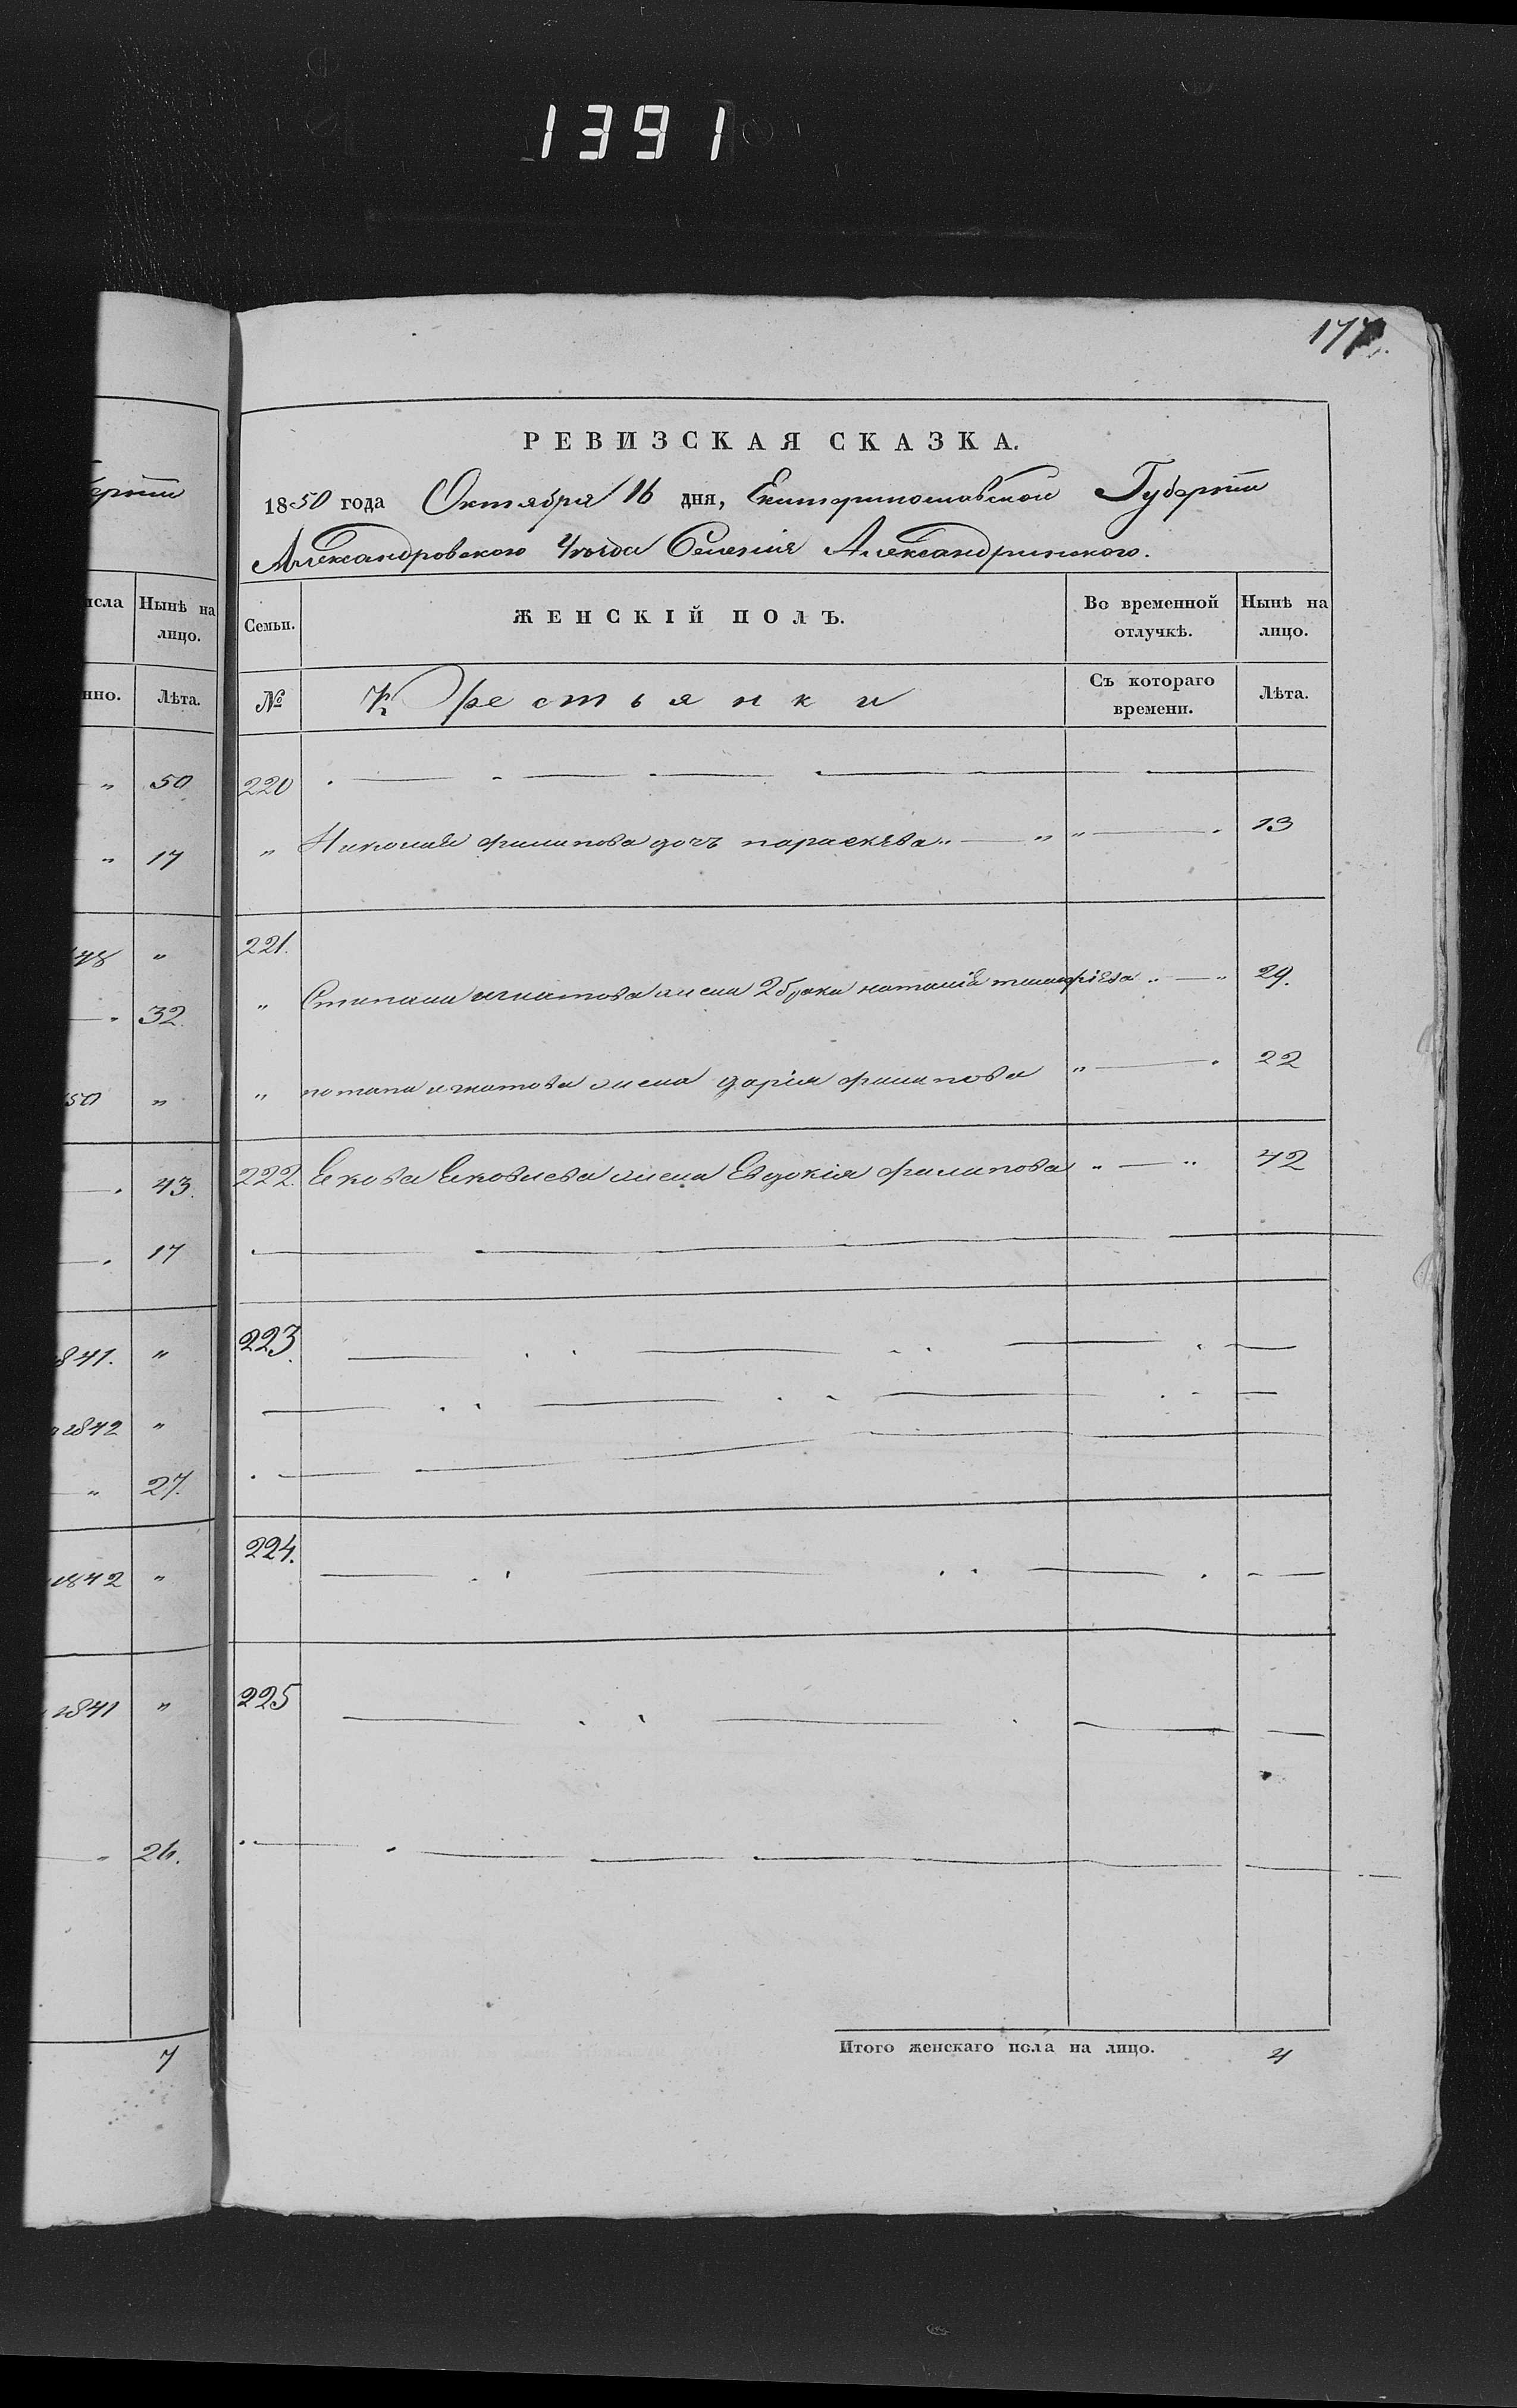 1391
177
РЕВИЗСКАЯ СКАЗКА.
1850 года Октября 16 дня, Екатеринославской Губернiи
Александровского Уѣзда Селенiя Александринского.
исла Нынѣ на лицо.
нно. Лѣта.
" 50
" 17
48 "
32.
50 "
43.
17
841. "
1842 "
" 27.
1842 "
1841 "
" 26.
7
Семьи. ЖЕНСКIЙ ПОЛЪ. Во временной отлучкѣ. Нынѣ на лицо.
№ Крестьянки Съ котораго времени. Лѣта.
220
" Николая филипова дочъ параскѣва " " " 13
221.
" Степана игнатова жена 2 брака наталiя " 29.
" потапа игнатова жена дарiя филипова " 22
222. ЕковаЕковлева жена Евдокiя филипова " " 42
223.
224.
225
Итого женскаго пола на лицо. 4